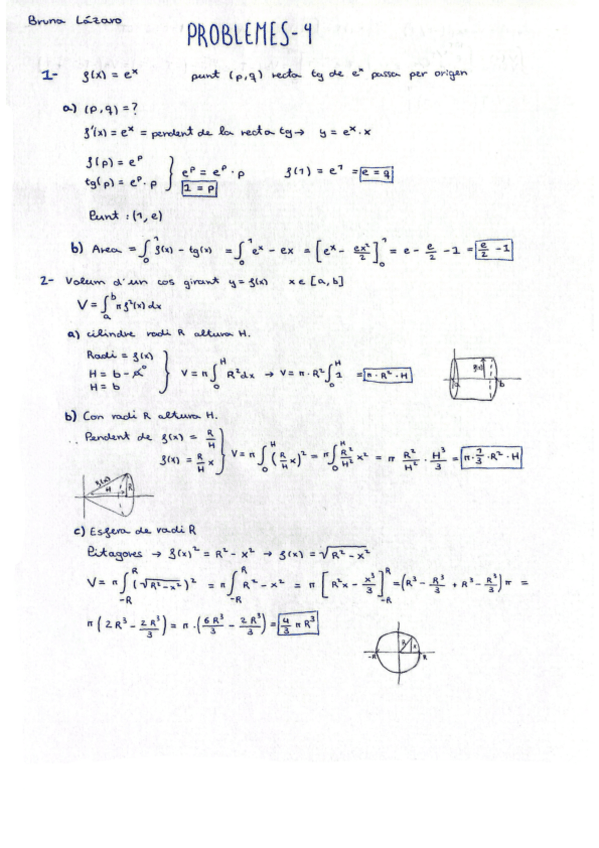 Bruna Lázaro
PROBLEMES-4
1- f(x) = eˣ punt (p,q) recta tg de eˣ passa per origen
a) (p,q) = ?
f'(x) = eˣ = pendent de la recta tg → y = eˣ · x
f(p) = eᵖ
tg(p) = eᵖ · p } eᵖ = eᵖ · p f(1) = e¹ = e = q
1 = p
Punt : (1, e)
b) Area = ∫₀¹ f(x) - tg(x) = ∫₀¹ eˣ - ex = [eˣ - ex²/2]₀¹ = e - e/2 - 1 = e/2 - 1
2- Volum d'un cos girant y = f(x) x ∈ [a, b]
V = ∫ₐᵇ π f²(x) dx
a) cilindre radi R altura H.
Radi = f(x)
H = b - a⁰ } V = π ∫₀ᴴ R² dx → V = π · R² ∫₀ᴴ 1 = π · R² · H
H = b
f(x)
a b
b) Con radi R altura H.
Pendent de f(x) = R/H
f(x) = R/H x } V = π ∫₀ᴴ (R/H x)² = π ∫₀ᴴ R²/H² x² = π R²/H² · H³/3 = π · 1/3 · R² · H
f(x)
H R
c) Esfera de radi R
Pitagores → f(x)² = R² - x² → f(x) = √(R² - x²)
V = π ∫₋ᴿᴿ (√(R² - x²))² = π ∫₋ᴿᴿ R² - x² = π [R²x - x³/3]₋ᴿᴿ = (R³ - R³/3 + R³ - R³/3) π =
π (2R³ - 2R³/3) = π · (6R³/3 - 2R³/3) = 4/3 π R³
R x
-R R